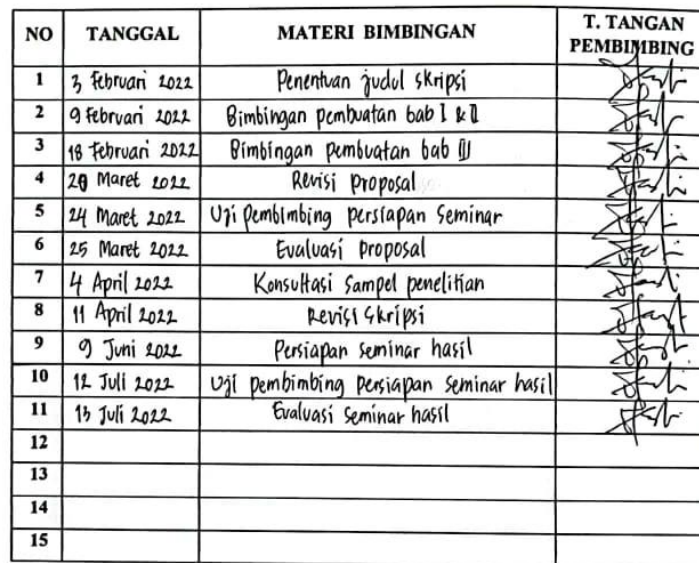 NO TANGGAL MATERI BIMBINGAN T. TANGAN PEMBIMBING
1 3 Februari 2022 Penentuan judul skripsi
2 9 Februari 2022 Bimbingan pembuatan bab I & II
3 18 Februari 2022 Bimbingan pembuatan bab III
4 20 Maret 2022 Revisi proposal
5 24 Maret 2022 Uji pembimbing persiapan seminar
6 25 Maret 2022 Evaluasi proposal
7 4 April 2022 Konsultasi sampel penelitian
8 11 April 2022 Revisi skripsi
9 9 Juni 2022 Persiapan seminar hasil
10 12 Juli 2022 Uji pembimbing persiapan seminar hasil
11 13 Juli 2022 Evaluasi seminar hasil
12
13
14
15